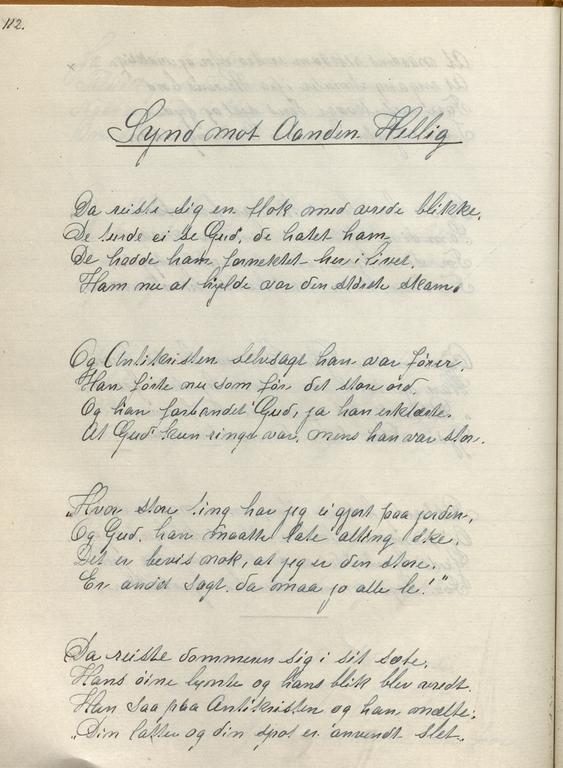 112.
Synd mot Aanden Hellig
Da reiste sig en flok med vrede blikke.
De turde ei se Gud, de hatet ham
De hadde ham fornektet her i livet.
Ham nu at hylde var den største skam.
Og Antikristen selvsagt han var fører.
Han førte nu som før det store ord.
Og han forbandet Gud, ja han erklærte.
At Gud kun ringe var, mens han var stor.
„Hvor store ting har jeg ei gjort paa jorden,
Og Gud, han maatte late alting ske.
Det er bevis nok, at jeg er den store.
Er andet sagt, da maa jo alle le!"
Da reiste dommeren sig i sit sæte,
Hans øine lynte og hans blik blev vredt.
Han saa paa Antikristen og han mælte:
„Din latter og din spot er anvendt slet.